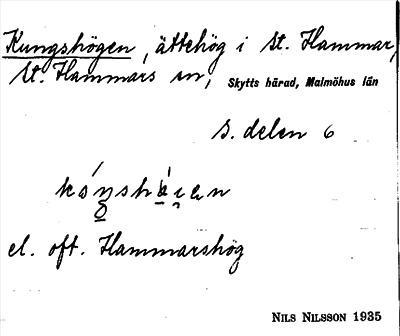 Kungshögen, ättehög i St. Hammar,
St. Hammars sn, Skytts härad, Malmöhus län
s. delen 6
el. oft. Hammarshög
NILS NILSSON 1935